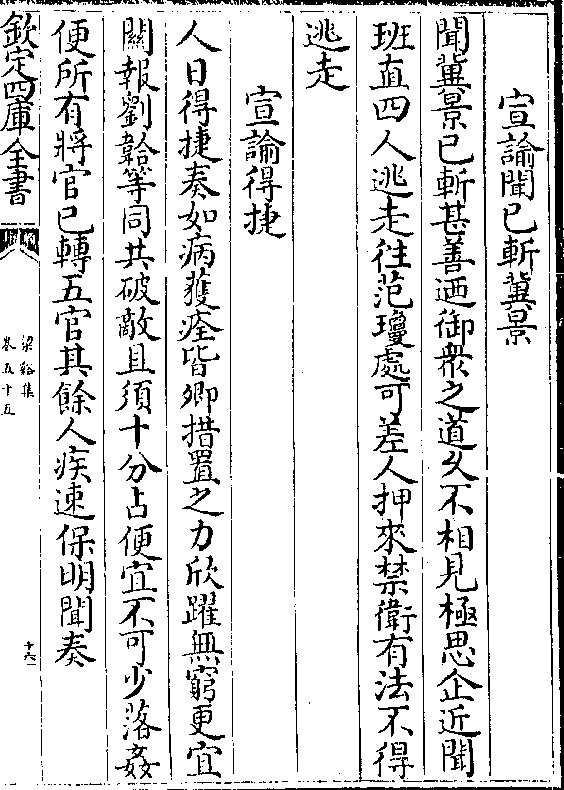 宣諭聞已斬冀景
聞冀景已斬甚善迺御衆之道乆不相見極思企近聞
班直四人逃走往范瓊處可差人押來禁衛有法不得
逃走
宣諭得捷
人日得捷奏如病獲痊皆卿措置之力欣躍無窮更宜
關報劉韐等同共破敵且須十分占便宜不可少落姦
便所有將官已轉五官其餘人疾速保明聞奏
欽定四庫全書
梁谿集
卷五十五
十六